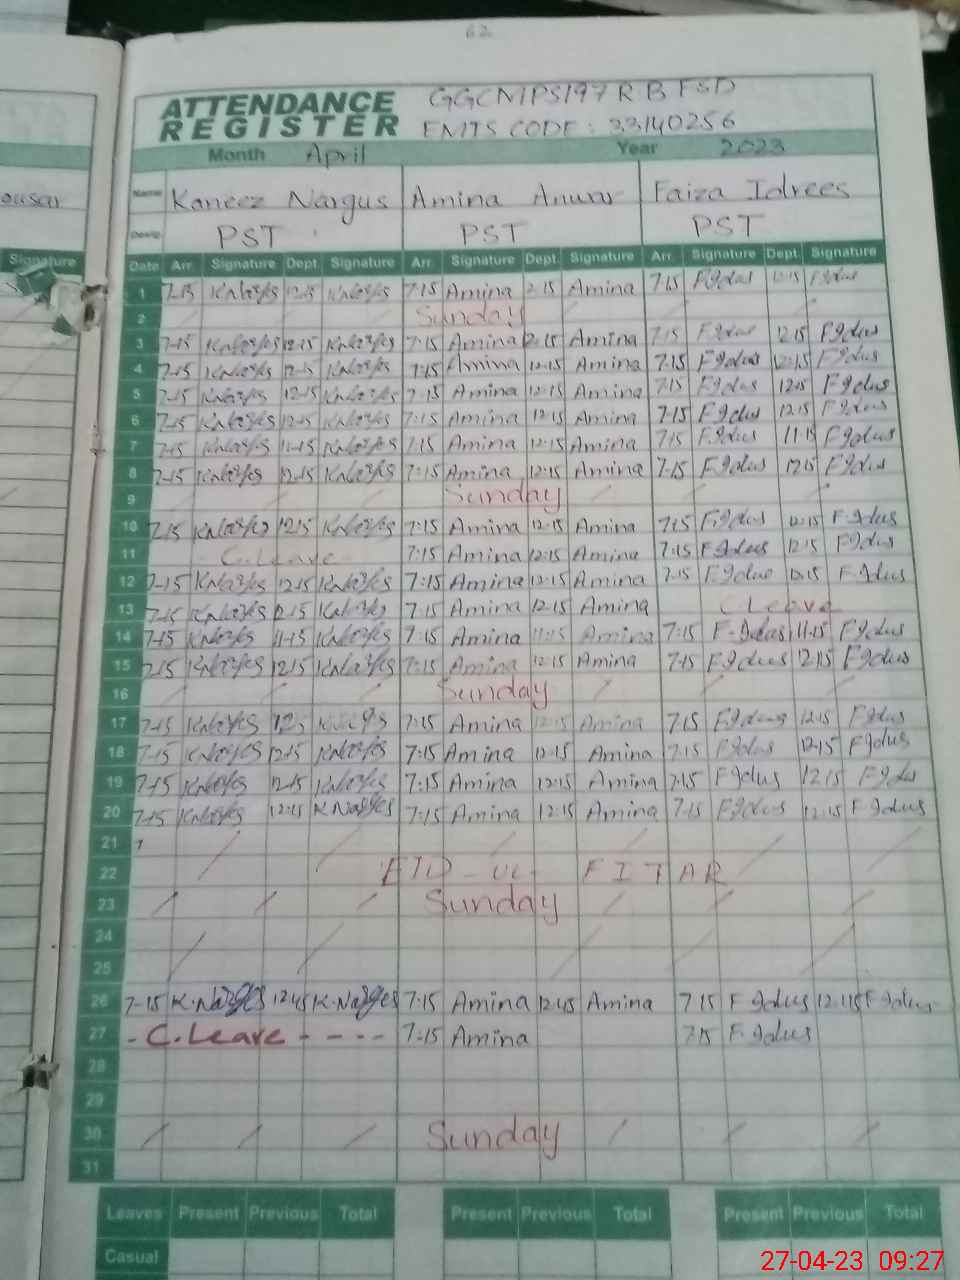 62
ATTENDANCE REGISTER
GGCMPS197 RB FSD
EMIS CODE: 33140256
Month April Year 2023
ousar
Name Kaneez Nargus Amina Anwar Faiza Idrees
Desig. PST PST PST
Signature
Date Arr. Signature Dept. Signature Arr. Signature Dept. Signature Arr. Signature Dept. Signature
1 7-15 12-15 7:15 Amina 12:15 Amina 7:15 12:15
2 Sunday
3 7-15 12-15 7:15 Amina 12:15 Amina 7:15 12:15
4 7-15 12-15 7:15 Amina 12:15 Amina 7:15 12:15
5 7-15 12-15 7:15 Amina 12:15 Amina 7:15 12:15
6 7-15 12-15 7:15 Amina 12:15 Amina 7:15 12:15
7 7-15 11-15 7:15 Amina Amina 7:15 11:15
8 7-15 12-15 7:15 Amina 12:15 Amina 7:15 12:15
9 Sunday
10 7-15 12-15 7:15 Amina 12:15 Amina 7:15 12:15
11 C.Leave 7:15 Amina 12:15 Amina 7:15 12:15
12 7-15 12-15 7:15 Amina 12-15 Amina 7:15 12:15
13 7-15 12-15 7:15 Amina 12-15 Amina C.Leave
14 7-15 11-15 7:15 Amina 11:15 Amina 7:15 11:15
15 7-15 12-15 7:15 Amina 12:15 Amina 7:15 12:15
16 Sunday
17 7-15 7:15 Amina 12:15 Amina 7:15 12:15
18 7-15 12-15 7:15 Amina 12-15 Amina 7:15 12:15
19 7-15 12-15 7:15 Amina 12:15 Amina 7:15 12:15
20 7-15 12:15 K.Narges 7:15 Amina 12:15 Amina 7:15 12:15
21
22 EID-UL-FITAR
23 Sunday
24
25
26 7-15 K.Narges 12:45 K.Narges 7:15 Amina 12:45 Amina 7:15
27 - C.Leave - - - - 7:15 Amina 7:15
28
29
30 Sunday
31
Leaves Present Previous Total Present Previous Total Present Previous Total
Casual
27-04-23 09:27